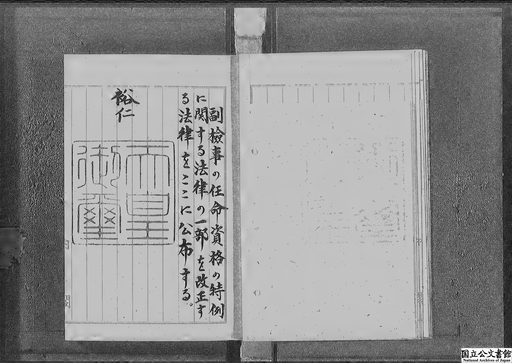 副検事の任命資格の特例
に関する法律の一部を改正す
る法律をここに公布する。
裕仁
天皇
御璽
国立公文書館
National Archives of Japan